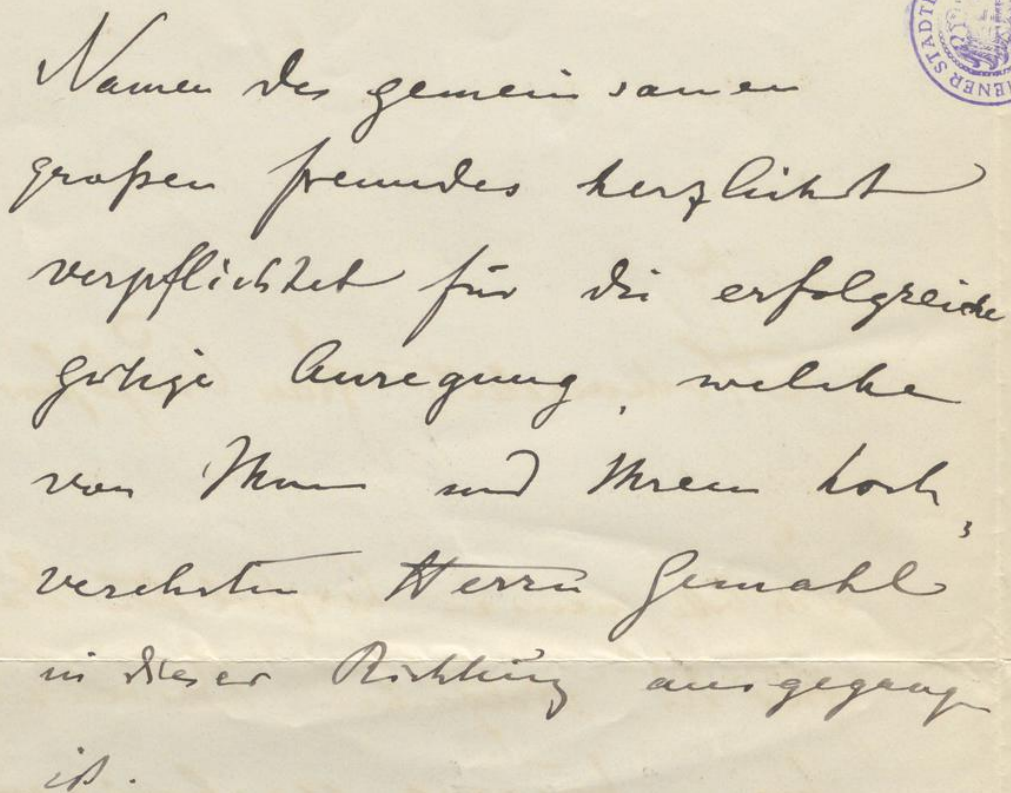 Namen des gemeinsamen
großen Freundes herzlichst
verpflichtet für die erfolgreiche
gütige Anregung, welche
von Ihnen und Ihrem hoch-
verehrten Herrn Gemahl
in dieser Richtung ausgegangen
ist.